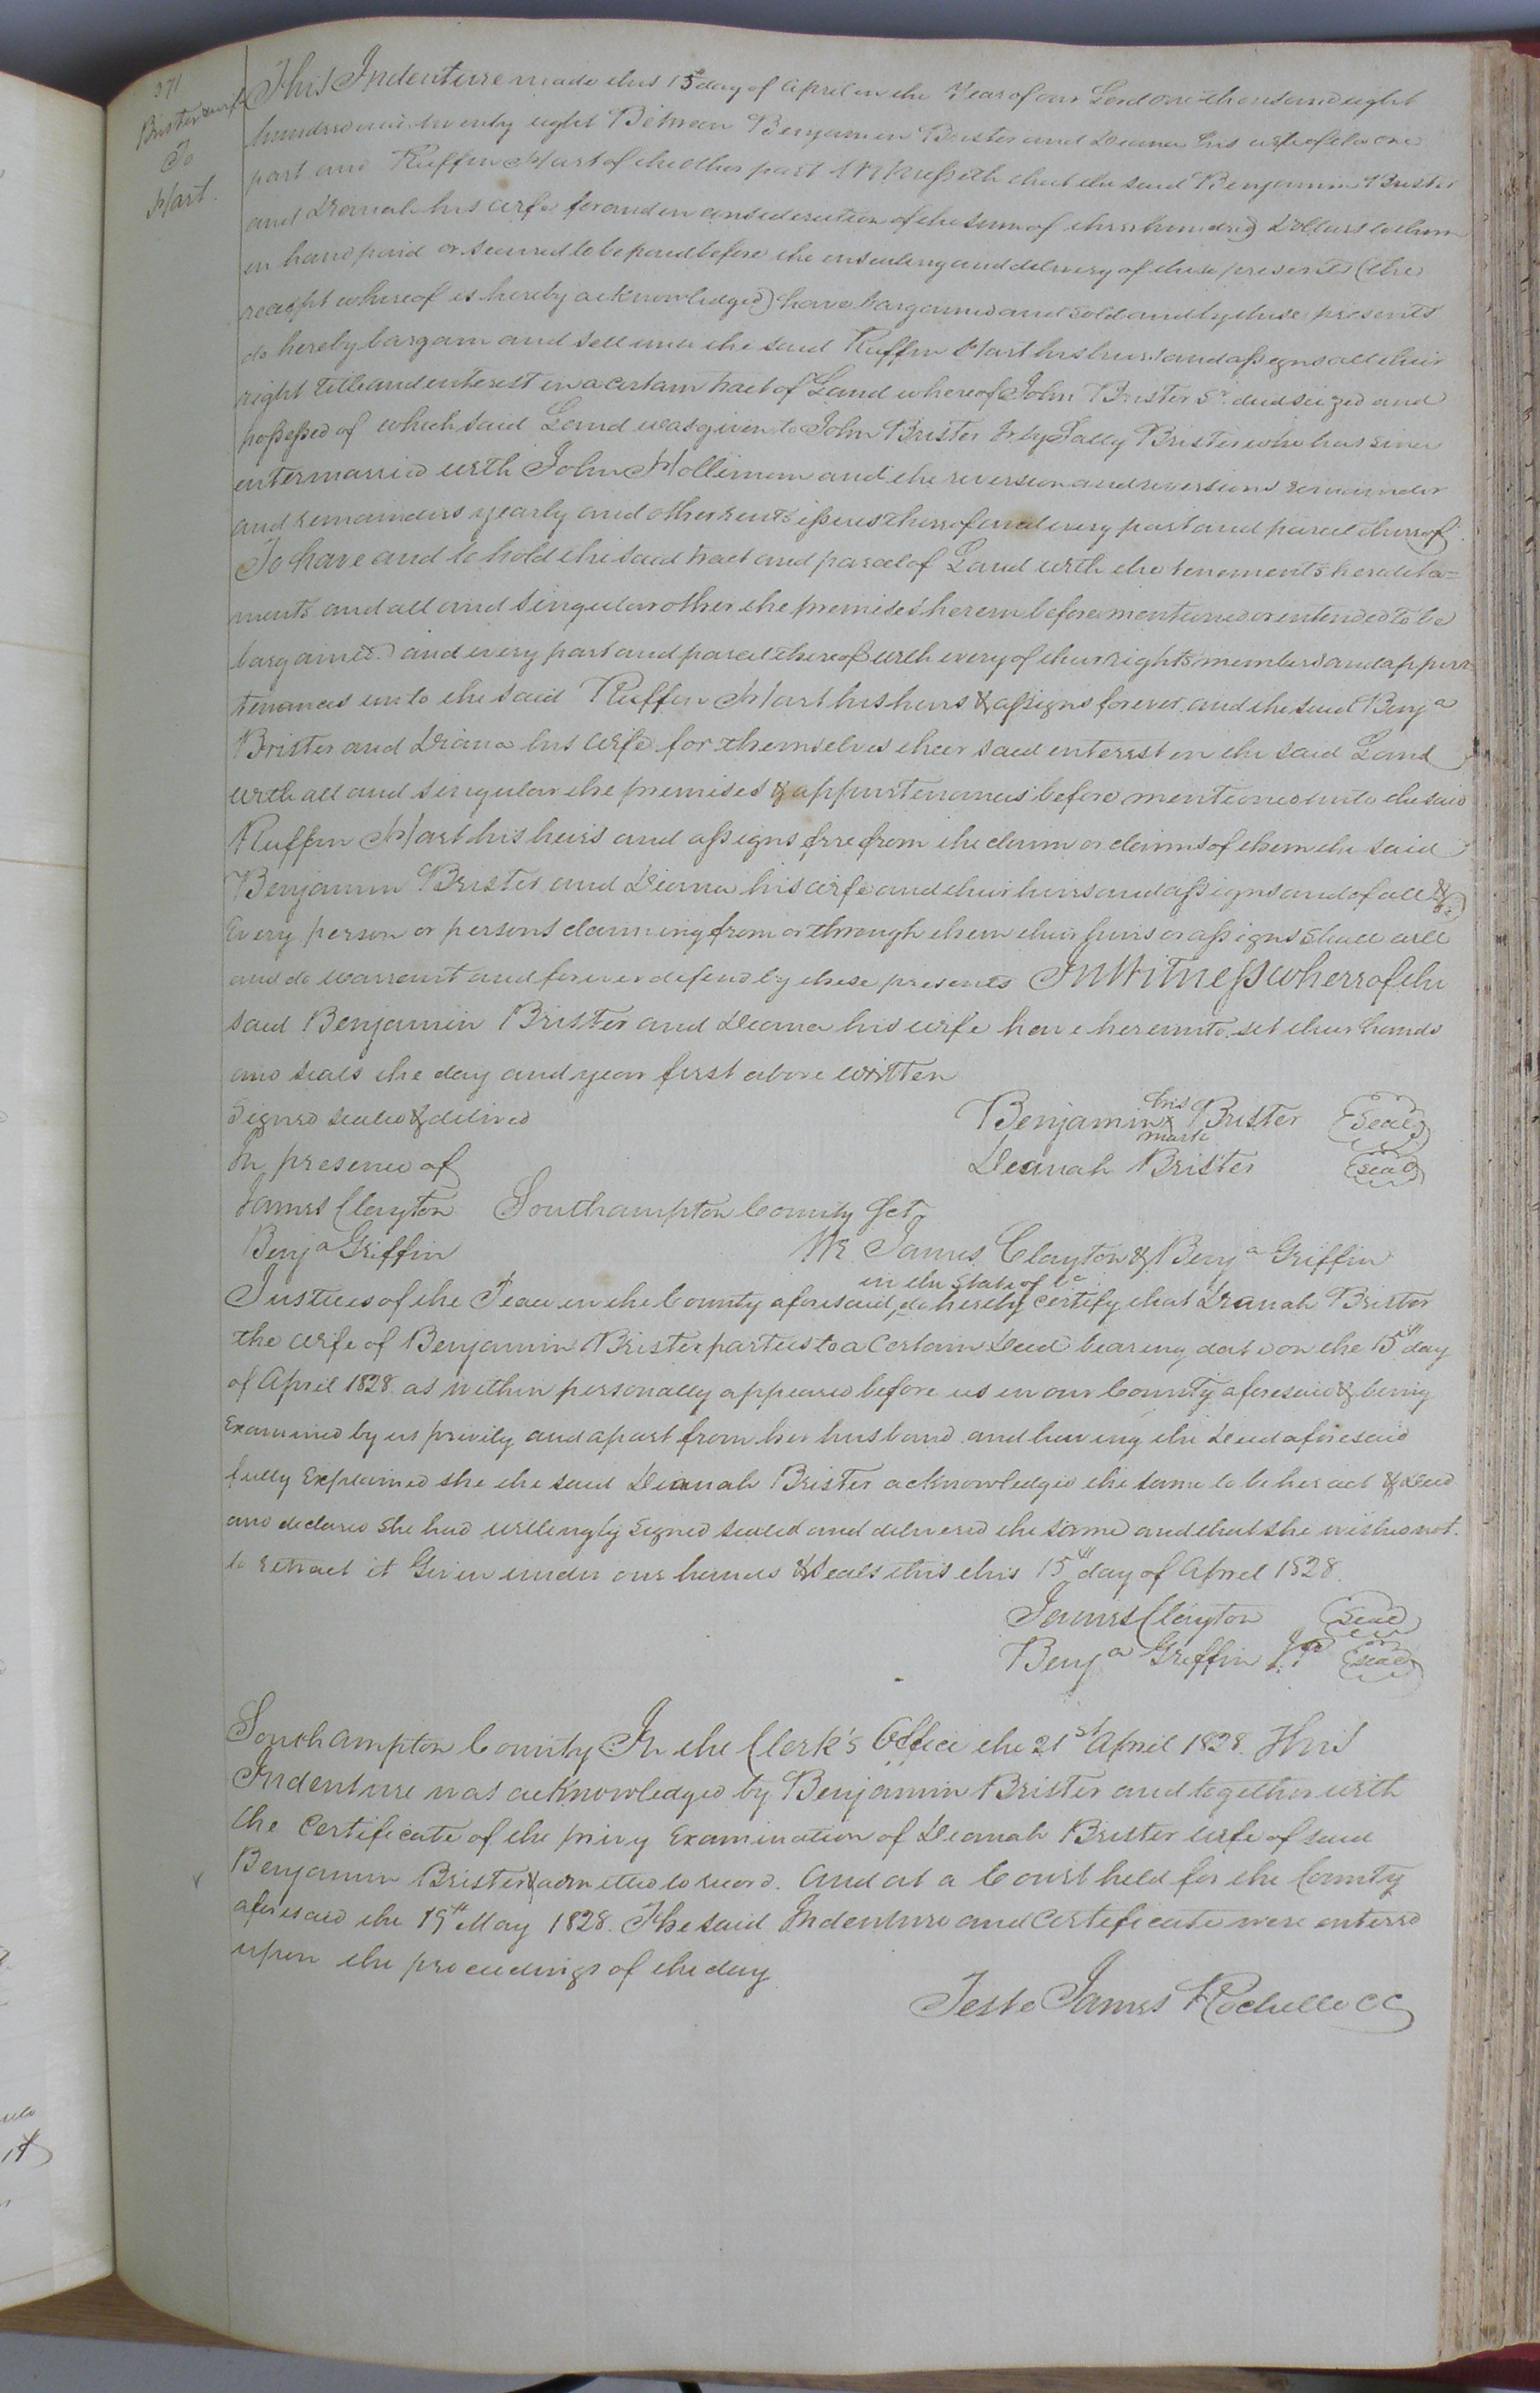 371
Brister & wife
To
Hart.
This Indenture made this 15th day of April in the Year of our Lord one thousand eight
hundred and twenty eight Between Benjamin Brister and Deana his wife of the one
part and Ruffin Hart of the other part Witnesseth that the said Benjamin Brister
and Deanah his wife for and in consideration of the sum of three hundred Dollars to them
in hand paid or secured to be paid before the ensealing and delivery of these presents (the
receipt whereof is hereby acknowledged) have bargained and sold and by these presents
do hereby bargain and sell unto the said Ruffin Hart his heirs and assigns all their
right title and interest in a certain tract of Land whereof John Brister Sr. died seized and
possessed of which said Land was given to John Brister Jr by Sally Brister who has since
intermarried with John Holliman and the reversion and reversions remainder
and remainders yearly and other rents issues thereof and every part and parcel thereof.
To have and to hold the said tract and parcel of Land with the tenements heredita=
ments and all and singular other the premises herein before mentioned or intended to be
bargained and every part and parcel thereof with every of their rights members and appur
tenances unto the said Ruffin Hart his heirs & assigns forever and the said Benja
Brister and Diana his wife for themselves their said interest in the said Land
with all and singular the premises & appurtenances before mentioned unto the said
Ruffin Hart his heirs and assigns free from the claim or claims of them the said
Benjamin Brister and Diana his wife and their heirs and assigns and of all &
Every person or persons claiming from or through them their heirs or assigns shall will
and do warrant and forever defend by these presents In Witness whereof the
said Benjamin Brister and Deana his wife have hereunto set their hands
and seals the day and year first above written
Signed sealed & delived
In presence of
James Clayton
Benja Griffin
Benjamin his x mark Brister Seal
Deanah Brister seal
Southampton County Sct.
We James Clayton & Benja Griffin
Justices of the Peace in the County aforesaid, in the State of Va do hereby certify that Deanah Brister
the wife of Benjamin Brister parties to a Certain Deed bearing date on the 15th day
of April 1828 as within personally appeared before us in our County aforesaid & being
Examined by us privily and apart from her husband and having the Deed aforesaid
fully Explained she the said Deanah Brister acknowledged the same to be her act & Deed
and declared She had willingly Signed sealed and delivered the same and that she wishes not
to retract it Given under our hands & Seals this this 15th day of April 1828
James Clayton Seal
Benja Griffin J.P. seal
Southampton County In the Clerk's Office the 21st April 1828. This
Indenture was acknowledged by Benjamin Brister and together with
the Certificate of the privy Examination of Deanah Brister wife of said
Benjamin Brister & admitted to record. And at a Court held for the County
aforesaid the 19th May 1828. The said Indenture and Certificate were entered
upon the proceedings of the day
Teste James Rochelle CC